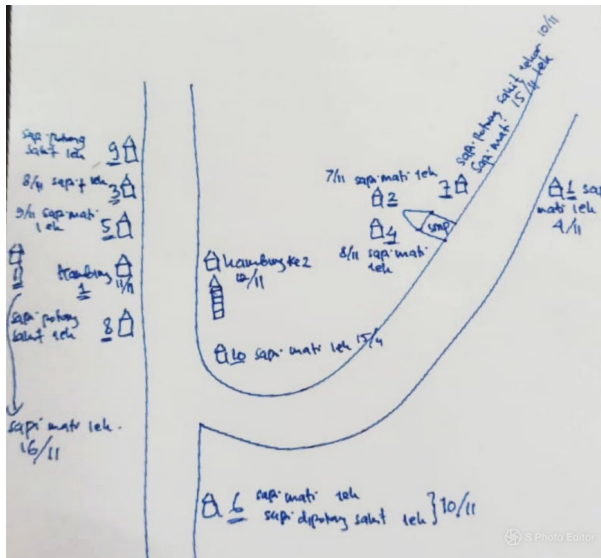 sapi potong
sakit 1ek 9
8/11 sapi 1ek
3
9/11 sapi mati
1ek 5
Kambing 11/11
1
sapi potong
sakit 1ek 8
sapi mati 1ek.
16/11
kambing ke 2
12/11
10 sapi mati 1ek 15/4
7/11 sapi mati 1ek
2
4
8/11 sapi mati
1ek
smp
7
sapi potong sakit 1ekor 10/11
sapi mati 15/4 1ek
1 sapi
mati 1ek
4/11
6 sapi mati 1ek
sapi dipotong sakit 1ek } 10/11
S Photo Editor